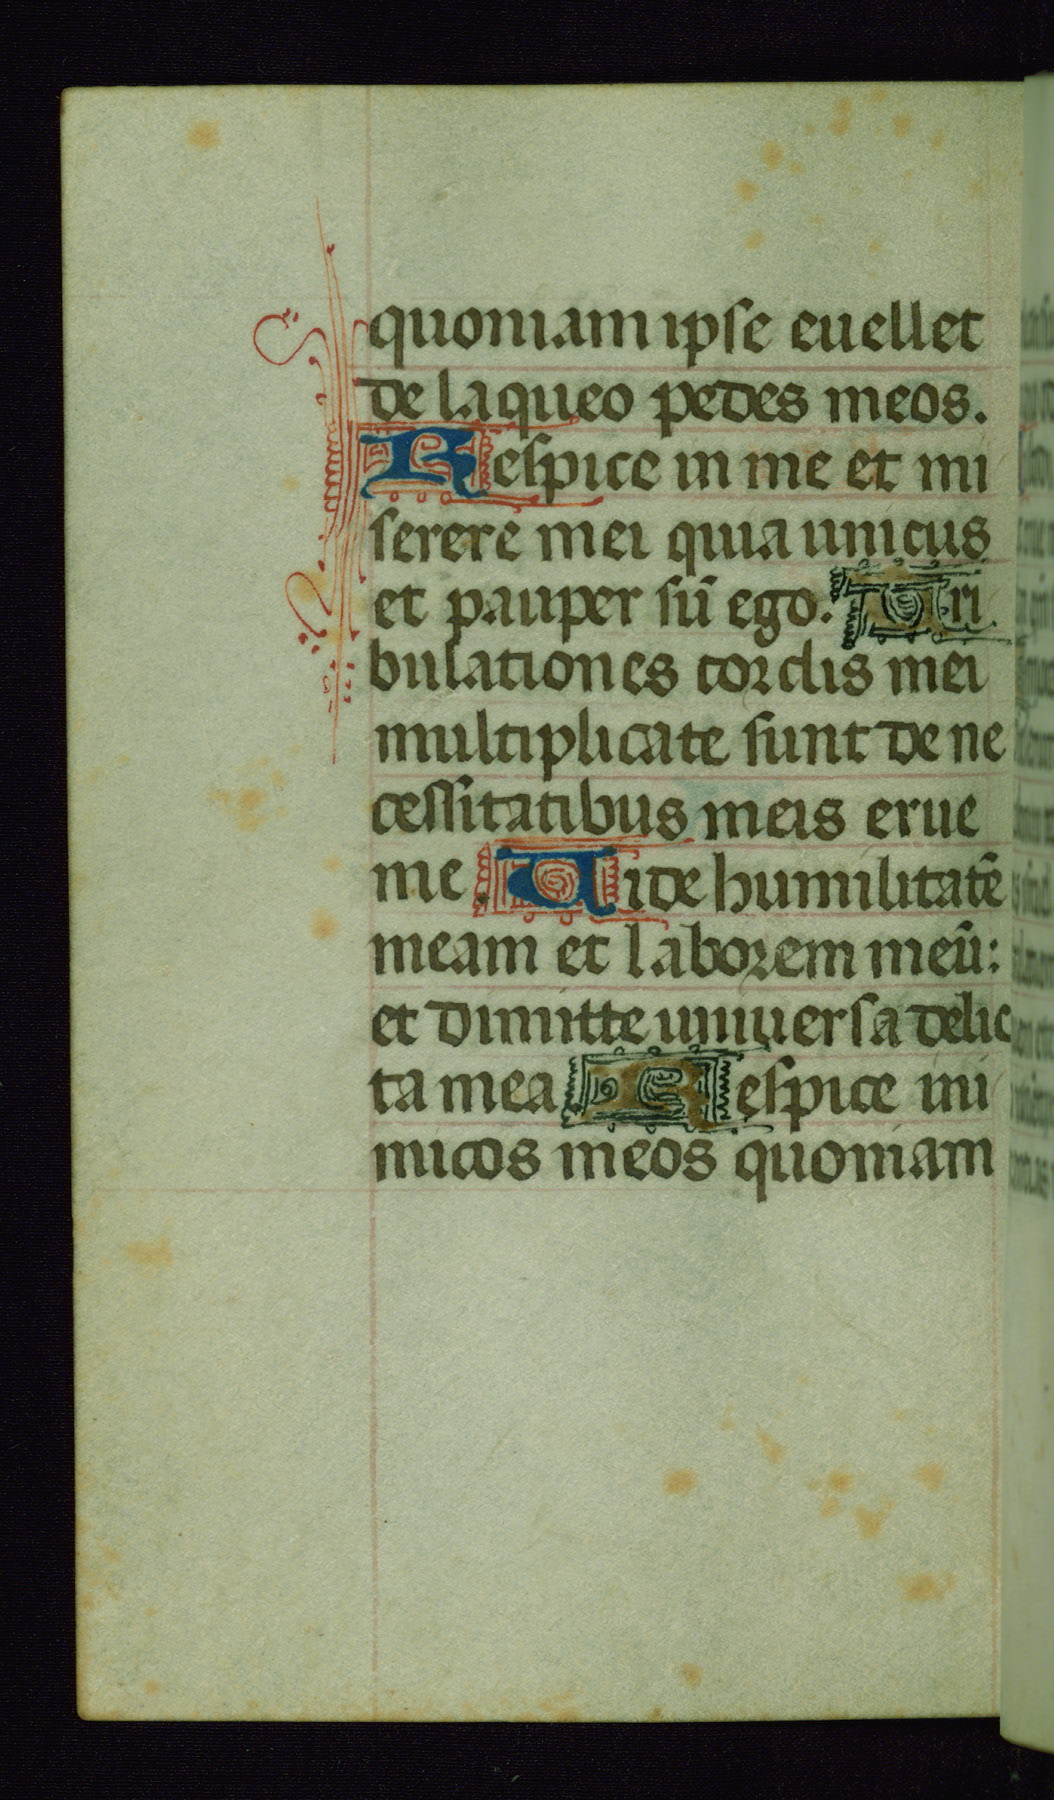 quoniam ipse euellet
de laqueo pedes meos.
Respice in me et mi
serere mei quia unicus
et pauper sū ego. Tri
bulationes cordis mei
multiplicate sunt de ne
cessitatibus meis erue
me. Uide humilitatē
meam et laborem meū:
et dimitte uniuersa delic
ta mea. Respice ini
micos meos quoniam